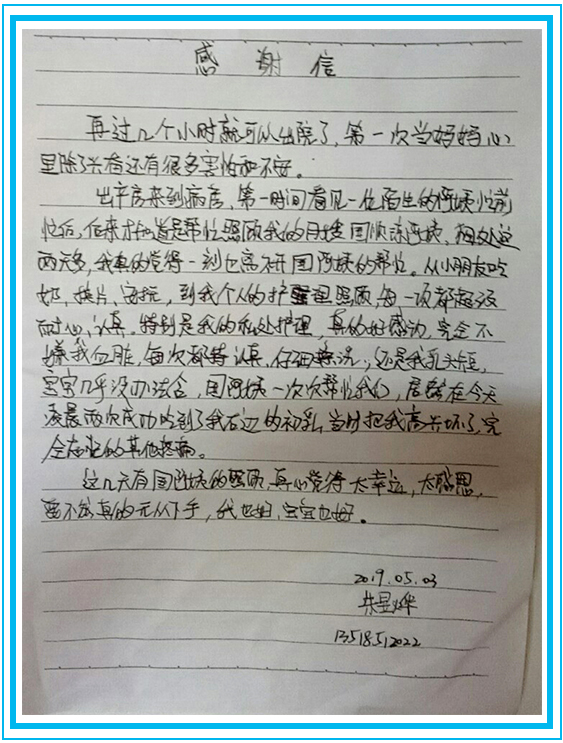 感谢信
再过几个小时就可以出院了，第一次当妈妈心
里除了兴奋还有很多害怕和不安。
出产房来到病房，第一时间看见一位陌生的阿姨忙前
忙后，后来才知道是帮忙照顾我的月嫂国顺阿姨，相处这
两天多，我真的觉得一刻也离不开国阿姨的帮忙。从小朋友吃
奶，换片，安抚，到我个人的护理照顾，每一项都超级
耐心，认真。特别是我的私处护理，真的好感动，完全不
嫌我血脏，每次都特认真，仔细清洗；还是我乳头短，
宝宝几乎没办法含，国阿姨一次次帮忙我们，居然在今天
凌晨两次成功吃到了我右边的初乳，当时把我高兴坏了，完
全忘记的其他疼痛。
这几天有国阿姨的照顾，真心觉得太幸运，太感恩，
要不然真的无从下手，我也好，宝宝也好。
2019.05.03
朱昱烨
13518512022